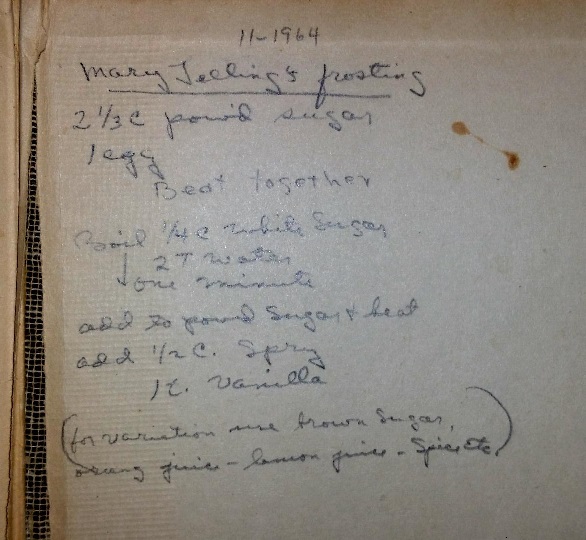 11-1964
Mary Jelling's frosting
2 1/3 C pow'd sugar
1 egg
Beat together
Boil 1/4 C white Sugar
2 T water
one minute
add to powd Sugar & beat
add 1/2 C. Spry
1 t. Vanilla
(for variation use brown Sugar,
orang juice - lemon juice - Spice etc.)